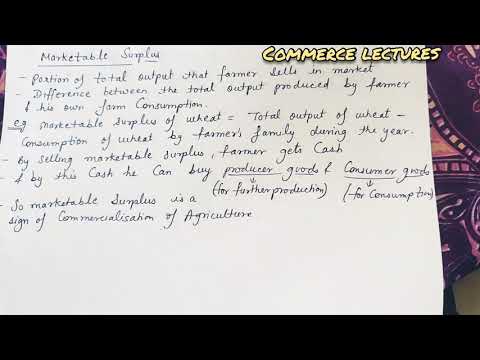 COMMERCE LECTURES
Marketable Surplus
- Portion of total output that farmer sells in market
- Difference between the total output produced by farmer
& his own farm Consumption.
e.g Marketable surplus of wheat = Total output of wheat -
Consumption of wheat by farmer's family during the year.
- By selling marketable surplus, farmer gets Cash
& by this Cash he Can buy producer goods & Consumer goods
(for further production) (for Consumption)
So marketable Surplus is a
sign of Commercialisation of Agriculture